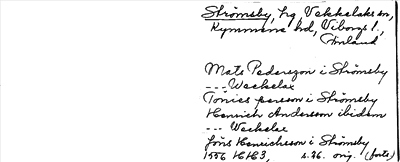 Strömsby, hg Vekkelaks sn,
Kymmene hd, Viborgs l.,
Finland
Mats Pederszon i Strömsby
--- Weckelax
Tönies persson i Strömsby
Henrich Andersson ibidem
--- Weckelax
Jöns Henrichsson i Strömsby
1556 KH3, s. 46. orig. (forts)